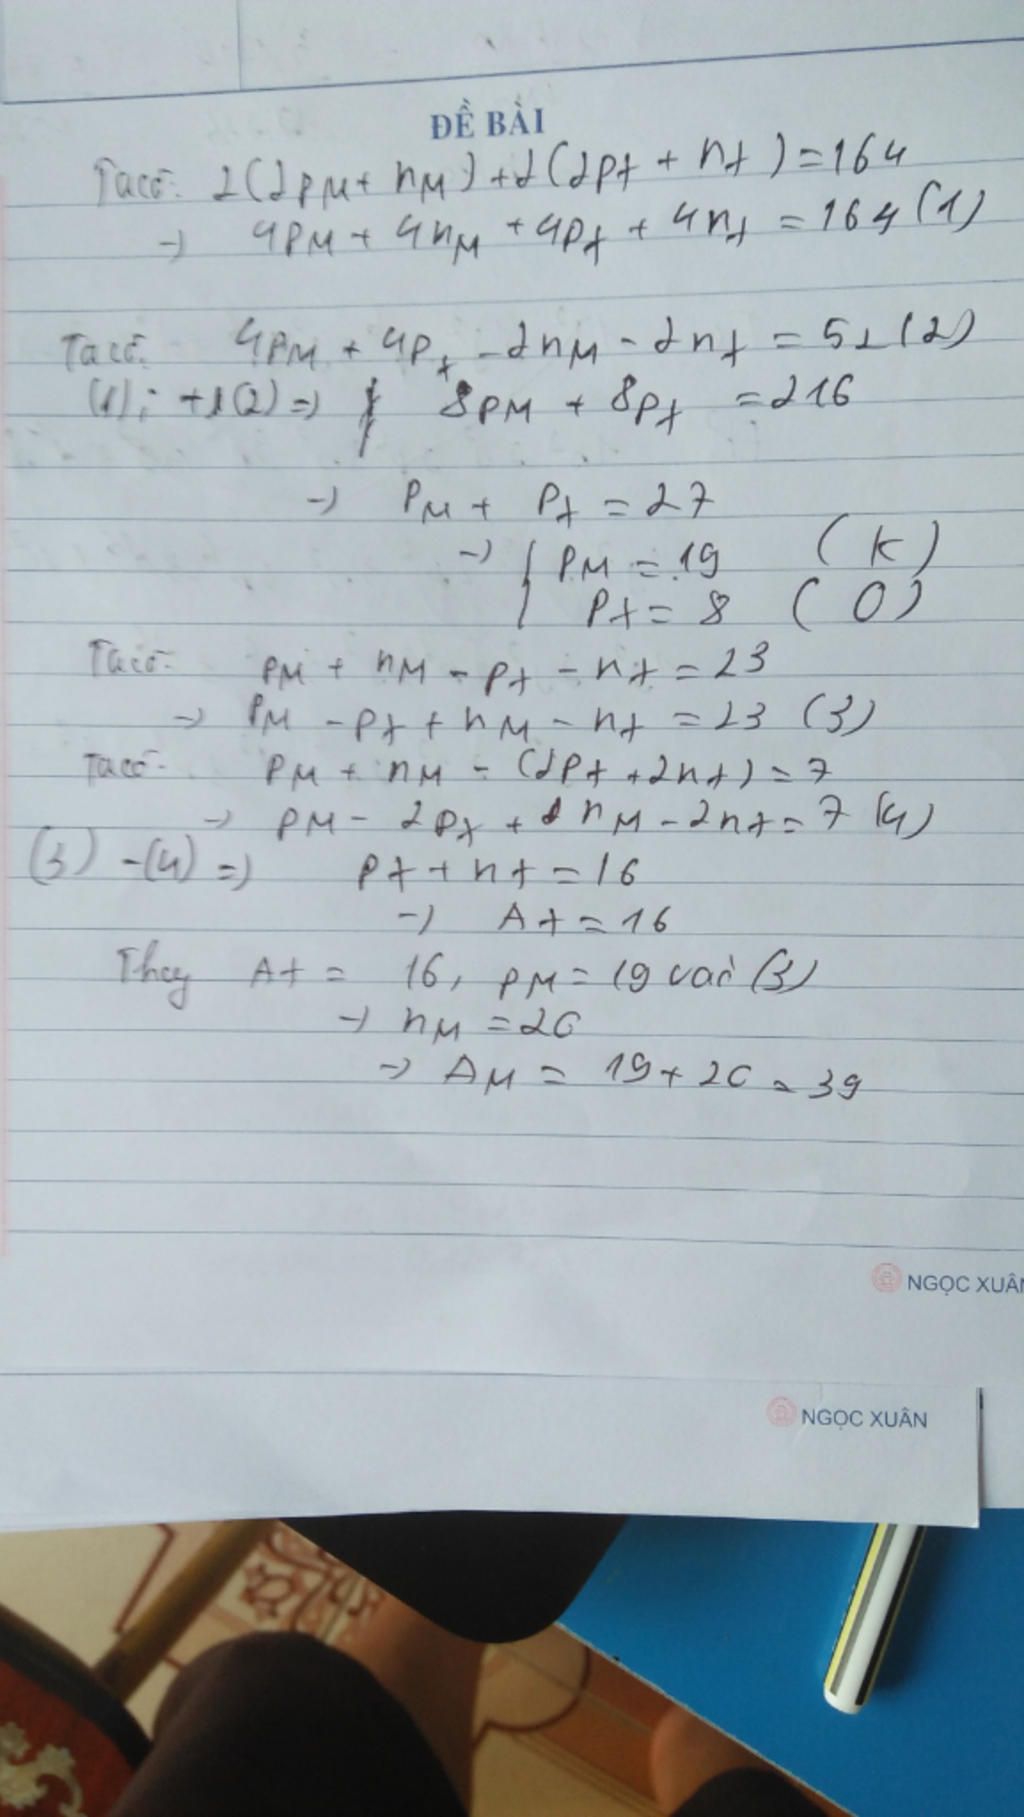 ĐỀ BÀI
Ta có: 2(2pM + nM) + 2(2px + nx) = 164
→ 4pM + 4nM + 4px + 4nx = 164 (1)
Ta có: 4pM + 4px - 2nM - 2nx = 52 (2)
(1); + (2) => 8pM + 8px = 216
→ pM + px = 27
→ { pM = 19 (K)
px = 8 (O)
Ta có: pM + nM - px - nx = 23
→ pM - px + nM - nx = 23 (3)
Ta có: pM + nM - (2px + 2nx) = 7
→ pM - 2px + nM - 2nx = 7 (4)
(3) - (4) => px + nx = 16
→ Ax = 16
Thay Ax = 16, pM = 19 vào (3)
→ nM = 20
→ AM = 19 + 20 = 39
NGỌC XUÂN
NGỌC XUÂN